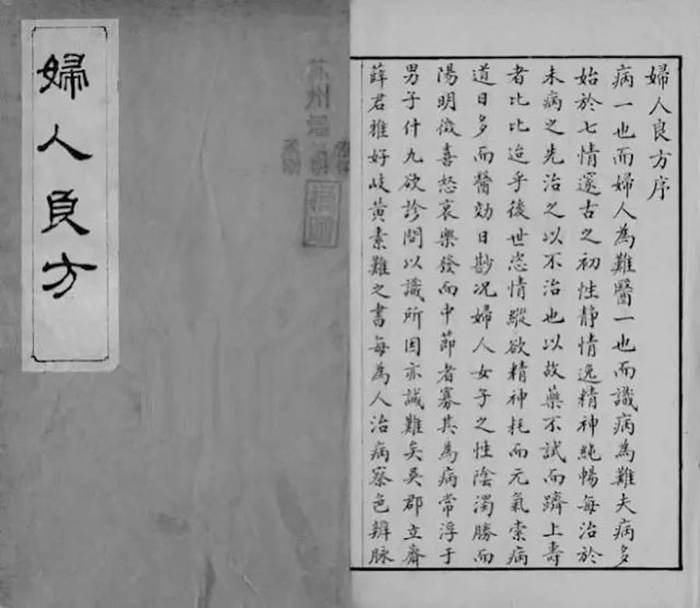 婦人良方
婦人良方序
病一也而婦人為難醫一也而識病為難夫病多
始於七情邃古之初性静情逸精神純暢每治於
未病之先治之以不治也以故藥不試而躋上壽
者比比迨乎後世恣情縱欲精神耗而元氣索病
道日多而醫効日尠况婦人女子之性陰濁勝而
陽明微喜怒哀樂發而中節者寡其為病常浮于
男子什九欲診問以識所因亦誠難矣吳郡立齋
薛君雅好岐黄素難之書每為人治病察色辨脉